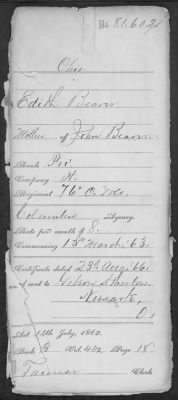 No. 81.602
Ohio
Edith Beaver
Mother of John Beaver
Rank Pri
Company H.
Regiment 76" O. Vols.
Columbus Agency.
Rate per month $ 8.
Commencing 13th March, 63.
Certificate dated 23d Aug. 66
and sent to Nelson
Newark,
O,
Act 14th July, 1862.
Book Vol. Page 15
Clerk